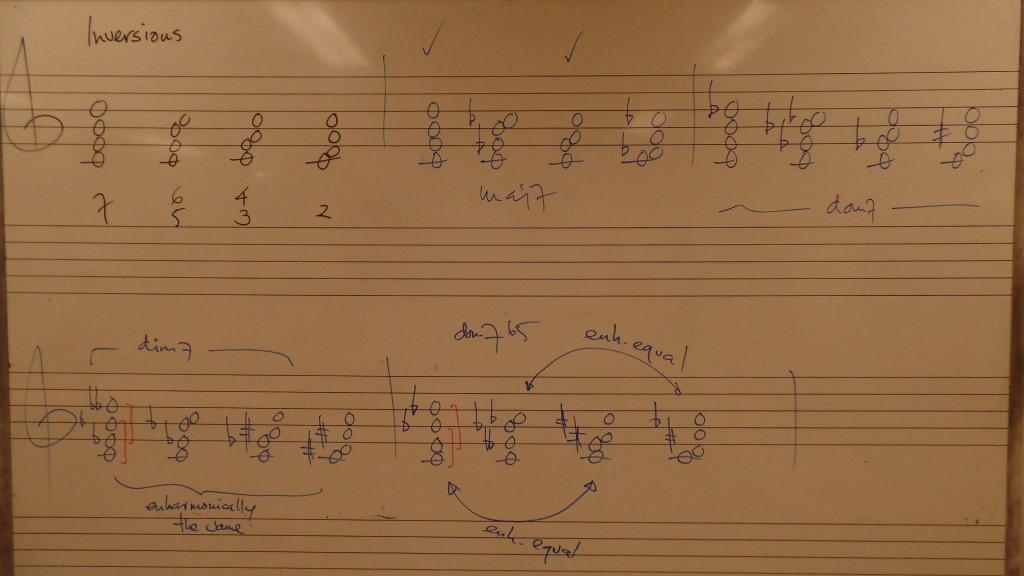 Inversions
7 6 4 2
5 3
maj7
dom7
dim7
dom7 b5
enh. equal
enharmonically
the same
enh. equal